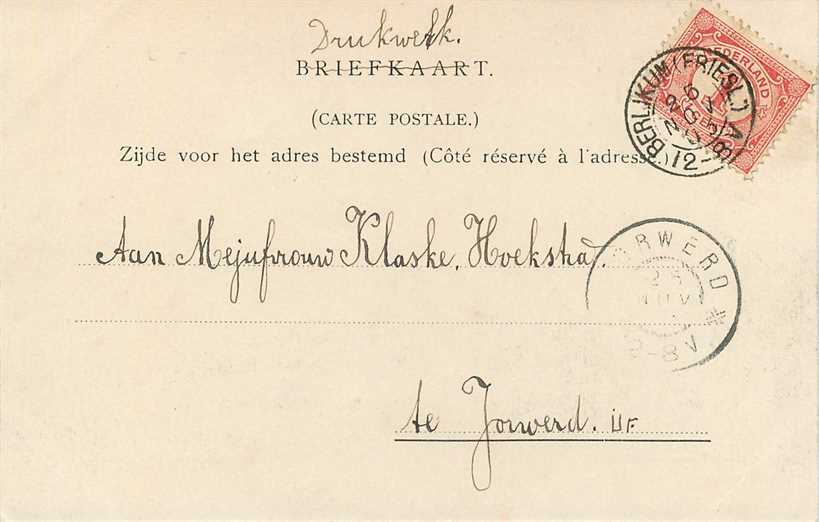 Drukwerk.
BRIEFKAART.
(CARTE POSTALE.)
Zijde voor het adres bestemd (Côté réservé à l'adresse.)
NEDERLAND
BERLIKUM (FRIESL.)
12-
Aan Mejufvrouw Klaske, Hoekstra.
ORWERD
-8V
te Jorwerd.